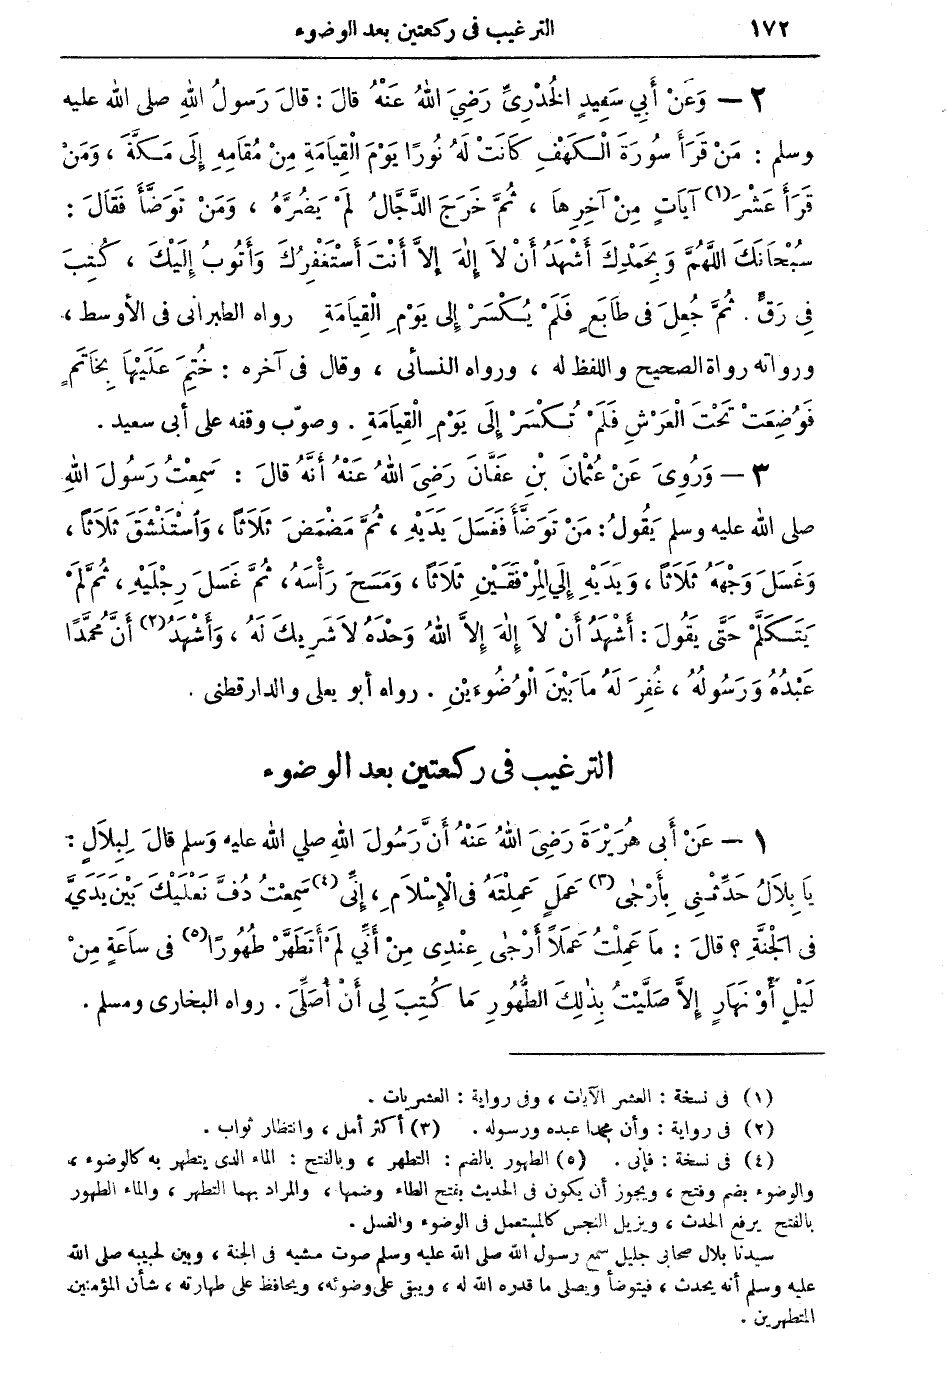 ١٧٢ الترغيب فى ركعتين بعد الوضوء
٢ — وَعَنْ أَبِي سَعِيدٍ الْخُدْرِيِّ رَضِيَ اللهُ عَنْهُ قالَ : قالَ رَسُولُ اللهِ صلى الله عليه
وسلم : مَنْ قَرَأَ سُورَةَ الْكَهْفِ كَانَتْ لَهُ نُورًا يَوْمَ الْقِيَامَةِ مِنْ مُقَامِهِ إِلَى مَكَّةَ ، وَمَنْ
قَرَأَ عَشْرَ(١) آيَاتٍ مِنْ آخِرِهاَ ، ثُمَّ خَرَجَ الدَّجَّالُ لَمْ يَضُرَّهُ ، وَمَنْ تَوَضَّأَ فَقَالَ :
سُبْحَانَكَ اللَّهُمَّ وَبِحَمْدِكَ أَشْهَدُ أَنْ لاَ إِلٰهَ إلاَّ أَنْتَ أَسْتَغْفِرُكَ وَأَتُوبُ إِلَيْكَ ، كُتِبَ
فِي رَقٍّ . ثُمَّ جُعِلَ فى طاَبَعٍ فَلَمْ يُكْسَرْ إِلى يَوْمِ الْقِيَامَةِ رواه الطبرانى فى الأوسط ،
ورواته رواة الصحيح واللفظ له ، ورواه النسائى ، وقال فى آخره : خُتِمَ عَلَيْهَا بِخَاتَمٍ
فَوُضِعَتْ تَحْتَ الْعَرْشِ فَلَمْ تُكْسَرْ إِلَى يَوْمِ الْقِيَامَةِ . وصوّب وقفه على أبى سعيد .
٣ — وَرُوِىَ عَنْ عُثْمَانَ بْنِ عَفَّانَ رَضِىَ اللهُ عَنْهُ أَنَّهُ قالَ : سَمِعْتُ رَسُولَ اللهِ
صلى الله عليه وسلم يَقُولُ : مَنْ تَوَضَّأَ فَغَسَلَ يَدَيْهِ ، ثُمَّ مَضْمَضَ ثَلاَثاً ، وَاسْتَنْشَقَ ثَلاَثاً ،
وَغَسَلَ وَجْهَهُ ثَلاَثاً ، وَيَدَيْهِ إِلَى الْمِرْفَقَيْنِ ثَلاَثاً ، وَمَسَحَ رَأْسَهُ ، ثُمَّ غَسَلَ رِجْلَيْهِ ، ثُمَّ لَمْ
يَتَكَلَّمْ حَتَّى يَقُولَ : أَشْهَدُ أَنْ لاَ إِلٰهَ إِلاَّ اللهُ وَحْدَهُ لاَ شَرِيكَ لَهُ ، وَأَشْهَدُ(٢) أَنَّ مُحَمَّدًا
عَبْدُهُ وَرَسُولُهُ ، غُفِرَ لَهُ ماَ بَيْنَ الْوُضُوءَيْنِ . رواه أبو يعلى والدارقطنى .
الترغيب فى ركعتين بعد الوضوء
١ — عَنْ أَبى هُرَيْرَةَ رَضِىَ اللهُ عَنْهُ أَنَّ رَسُولَ اللهِ صلي الله عليه وَسلم قالَ لِبِلاَلٍ :
يَا بِلاَلُ حَدِّثْنِى بِأَرْجٰى(٣) عَمَلٍ عَمِلْتَهُ فى الْإِسْلاَمِ ، إِنِّى(٤) سَمِعْتُ دُفَّ نَعْلَيْكَ بَيْنَ يَدَىَّ
فى الْجَنَّةِ ؟ قالَ : ماَ عَمِلْتُ عَمَلاً أَرْجٰى عِنْدِى مِنْ أَنِّي لَمْ أَتَطَهَّرْ طُهُورًا(٥) فى ساَعَةٍ مِنْ
لَيْلٍ أَوْ نَهَارٍ إِلاَّ صَلَّيْتُ بِذٰلِكَ الطُّهُورِ مَا كُتِبَ لِى أَنْ أُصَلِّىَ . رواه البخارى ومسلم .
(١) فى نسخة : العشر الآيات ، وفى رواية : العشريات .
(٢) فى رواية : وأن محمدا عبده ورسوله . (٣) أكثر أمل ، وانتظار ثواب .
(٤) فى نسخة : فإنى . (٥) الطهور بالضم : التطهر ، وبالفتح : الماء الذى يتطهر به كالوضوء ،
والوضوء بضم وفتح ، ويجوز أن يكون فى الحديث بفتح الطاء وضمها ، والمراد بهما التطهر ، والماء الطهور
بالفتح يرفع الحدث ، ويزيل النجس كالمستعمل فى الوضوء والغسل .
سيدنا بلال صحابى جليل سمع رسول الله صلى الله عليه وسلم صوت مشيه فى الجنة ، وبين لحبيبه صلى الله
عليه وسلم أنه يحدث ، فيتوضأ ويصلى ما قدره الله له ، ويبقى على وضوئه ، ويحافظ على طهارته ، شأن المؤمنين
المتطهرين .